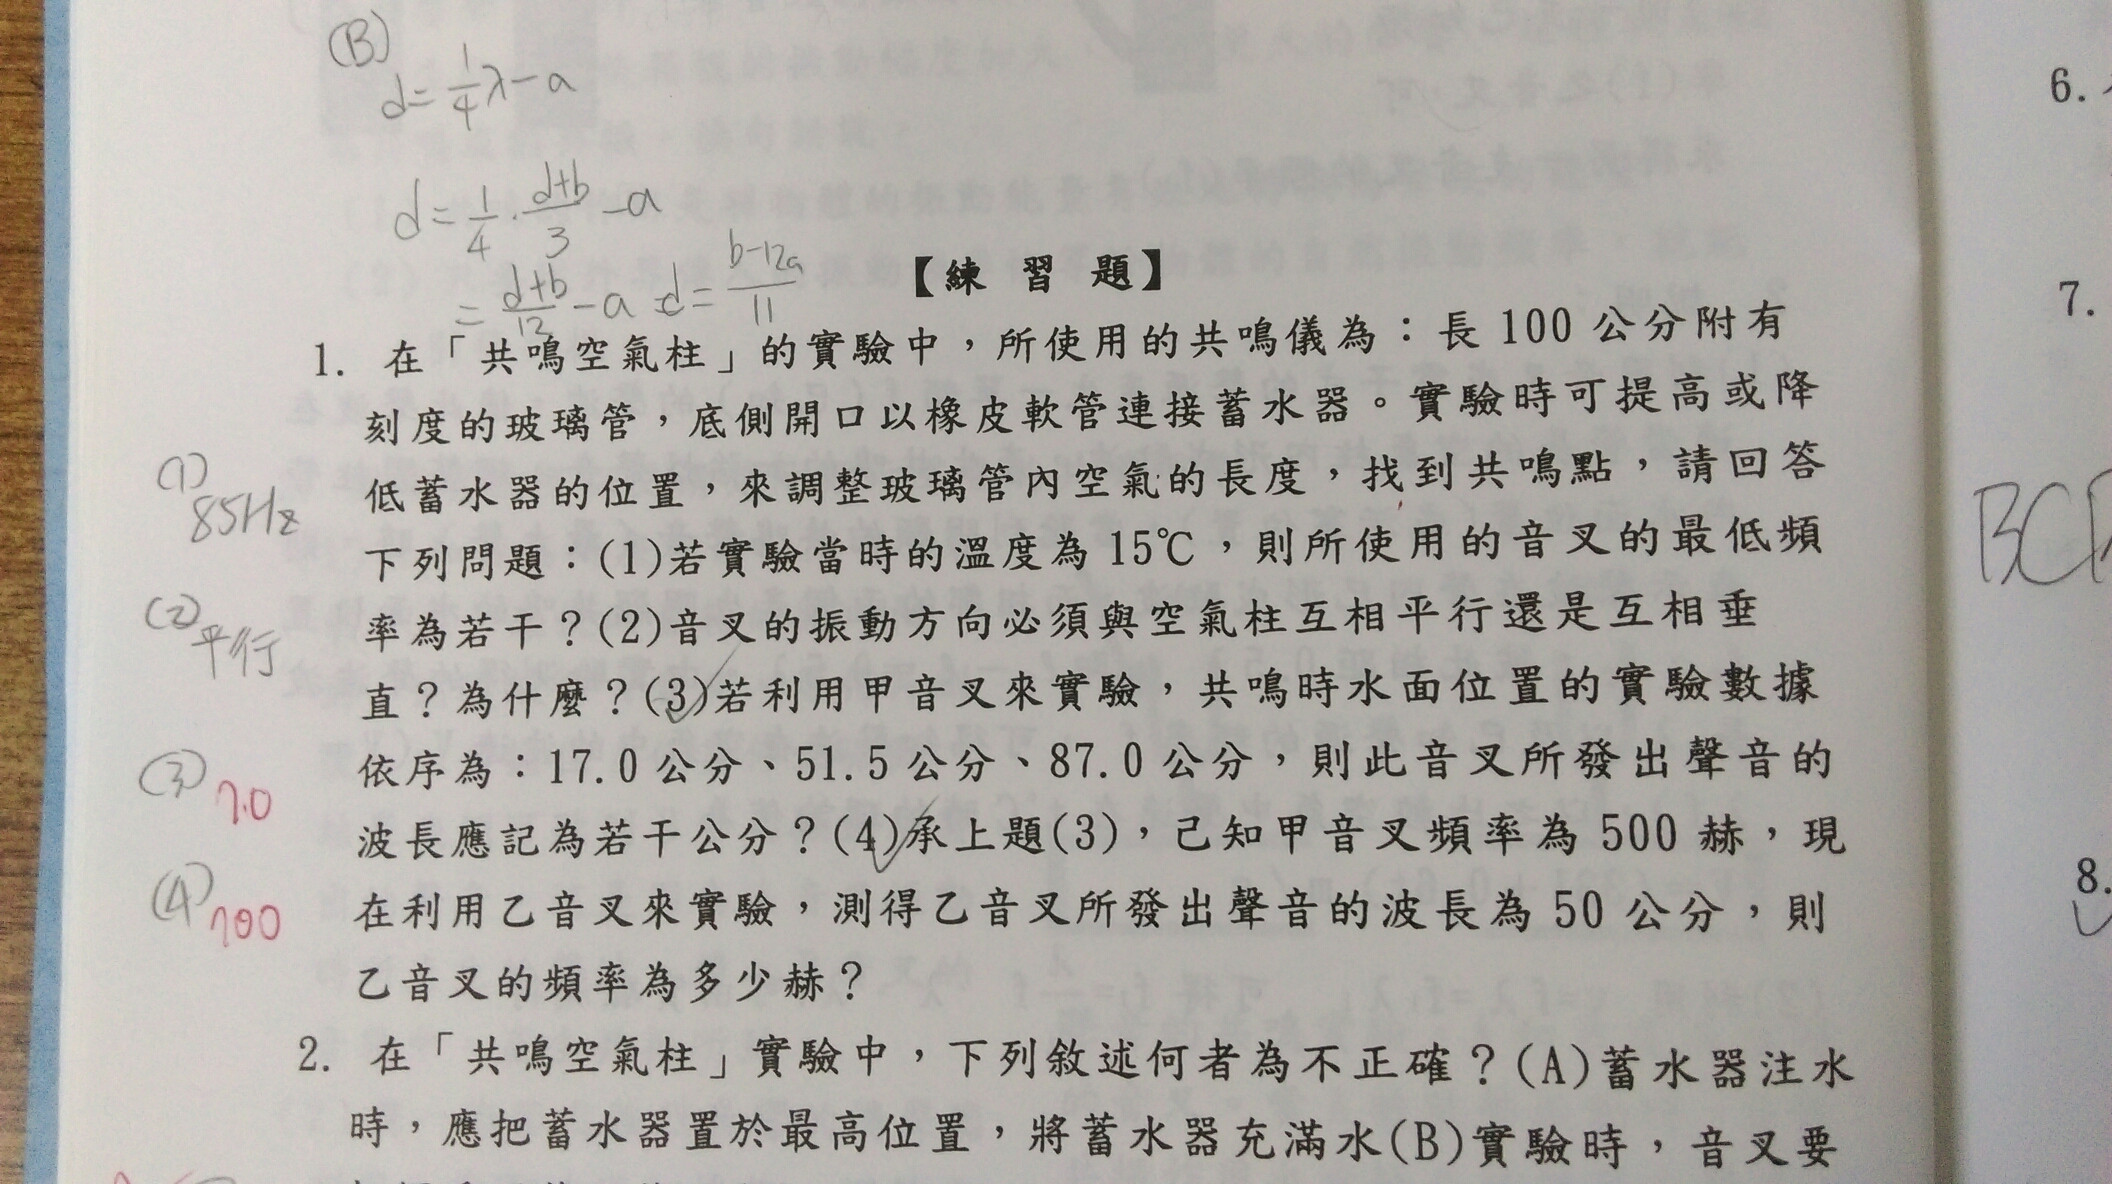 (B)
d=1/4λ-a
d=1/4·(d+b)/3-a
=(d+b)/12-a d=(b-12a)/11
【練習題】
1. 在「共鳴空氣柱」的實驗中，所使用的共鳴儀為：長 100 公分附有
刻度的玻璃管，底側開口以橡皮軟管連接蓄水器。實驗時可提高或降
低蓄水器的位置，來調整玻璃管內空氣的長度，找到共鳴點，請回答
下列問題：(1)若實驗當時的溫度為 15℃，則所使用的音叉的最低頻
率為若干？(2)音叉的振動方向必須與空氣柱互相平行還是互相垂
直？為什麼？(3)若利用甲音叉來實驗，共鳴時水面位置的實驗數據
依序為：17.0 公分、51.5 公分、87.0 公分，則此音叉所發出聲音的
波長應記為若干公分？(4)承上題(3)，己知甲音叉頻率為 500 赫，現
在利用乙音叉來實驗，測得乙音叉所發出聲音的波長為 50 公分，則
乙音叉的頻率為多少赫？
2. 在「共鳴空氣柱」實驗中，下列敘述何者為不正確？(A)蓄水器注水
時，應把蓄水器置於最高位置，將蓄水器充滿水(B)實驗時，音叉要
(1)
85Hz
(2)
平行
(3) 70
(4) 700
6.
7.
8.